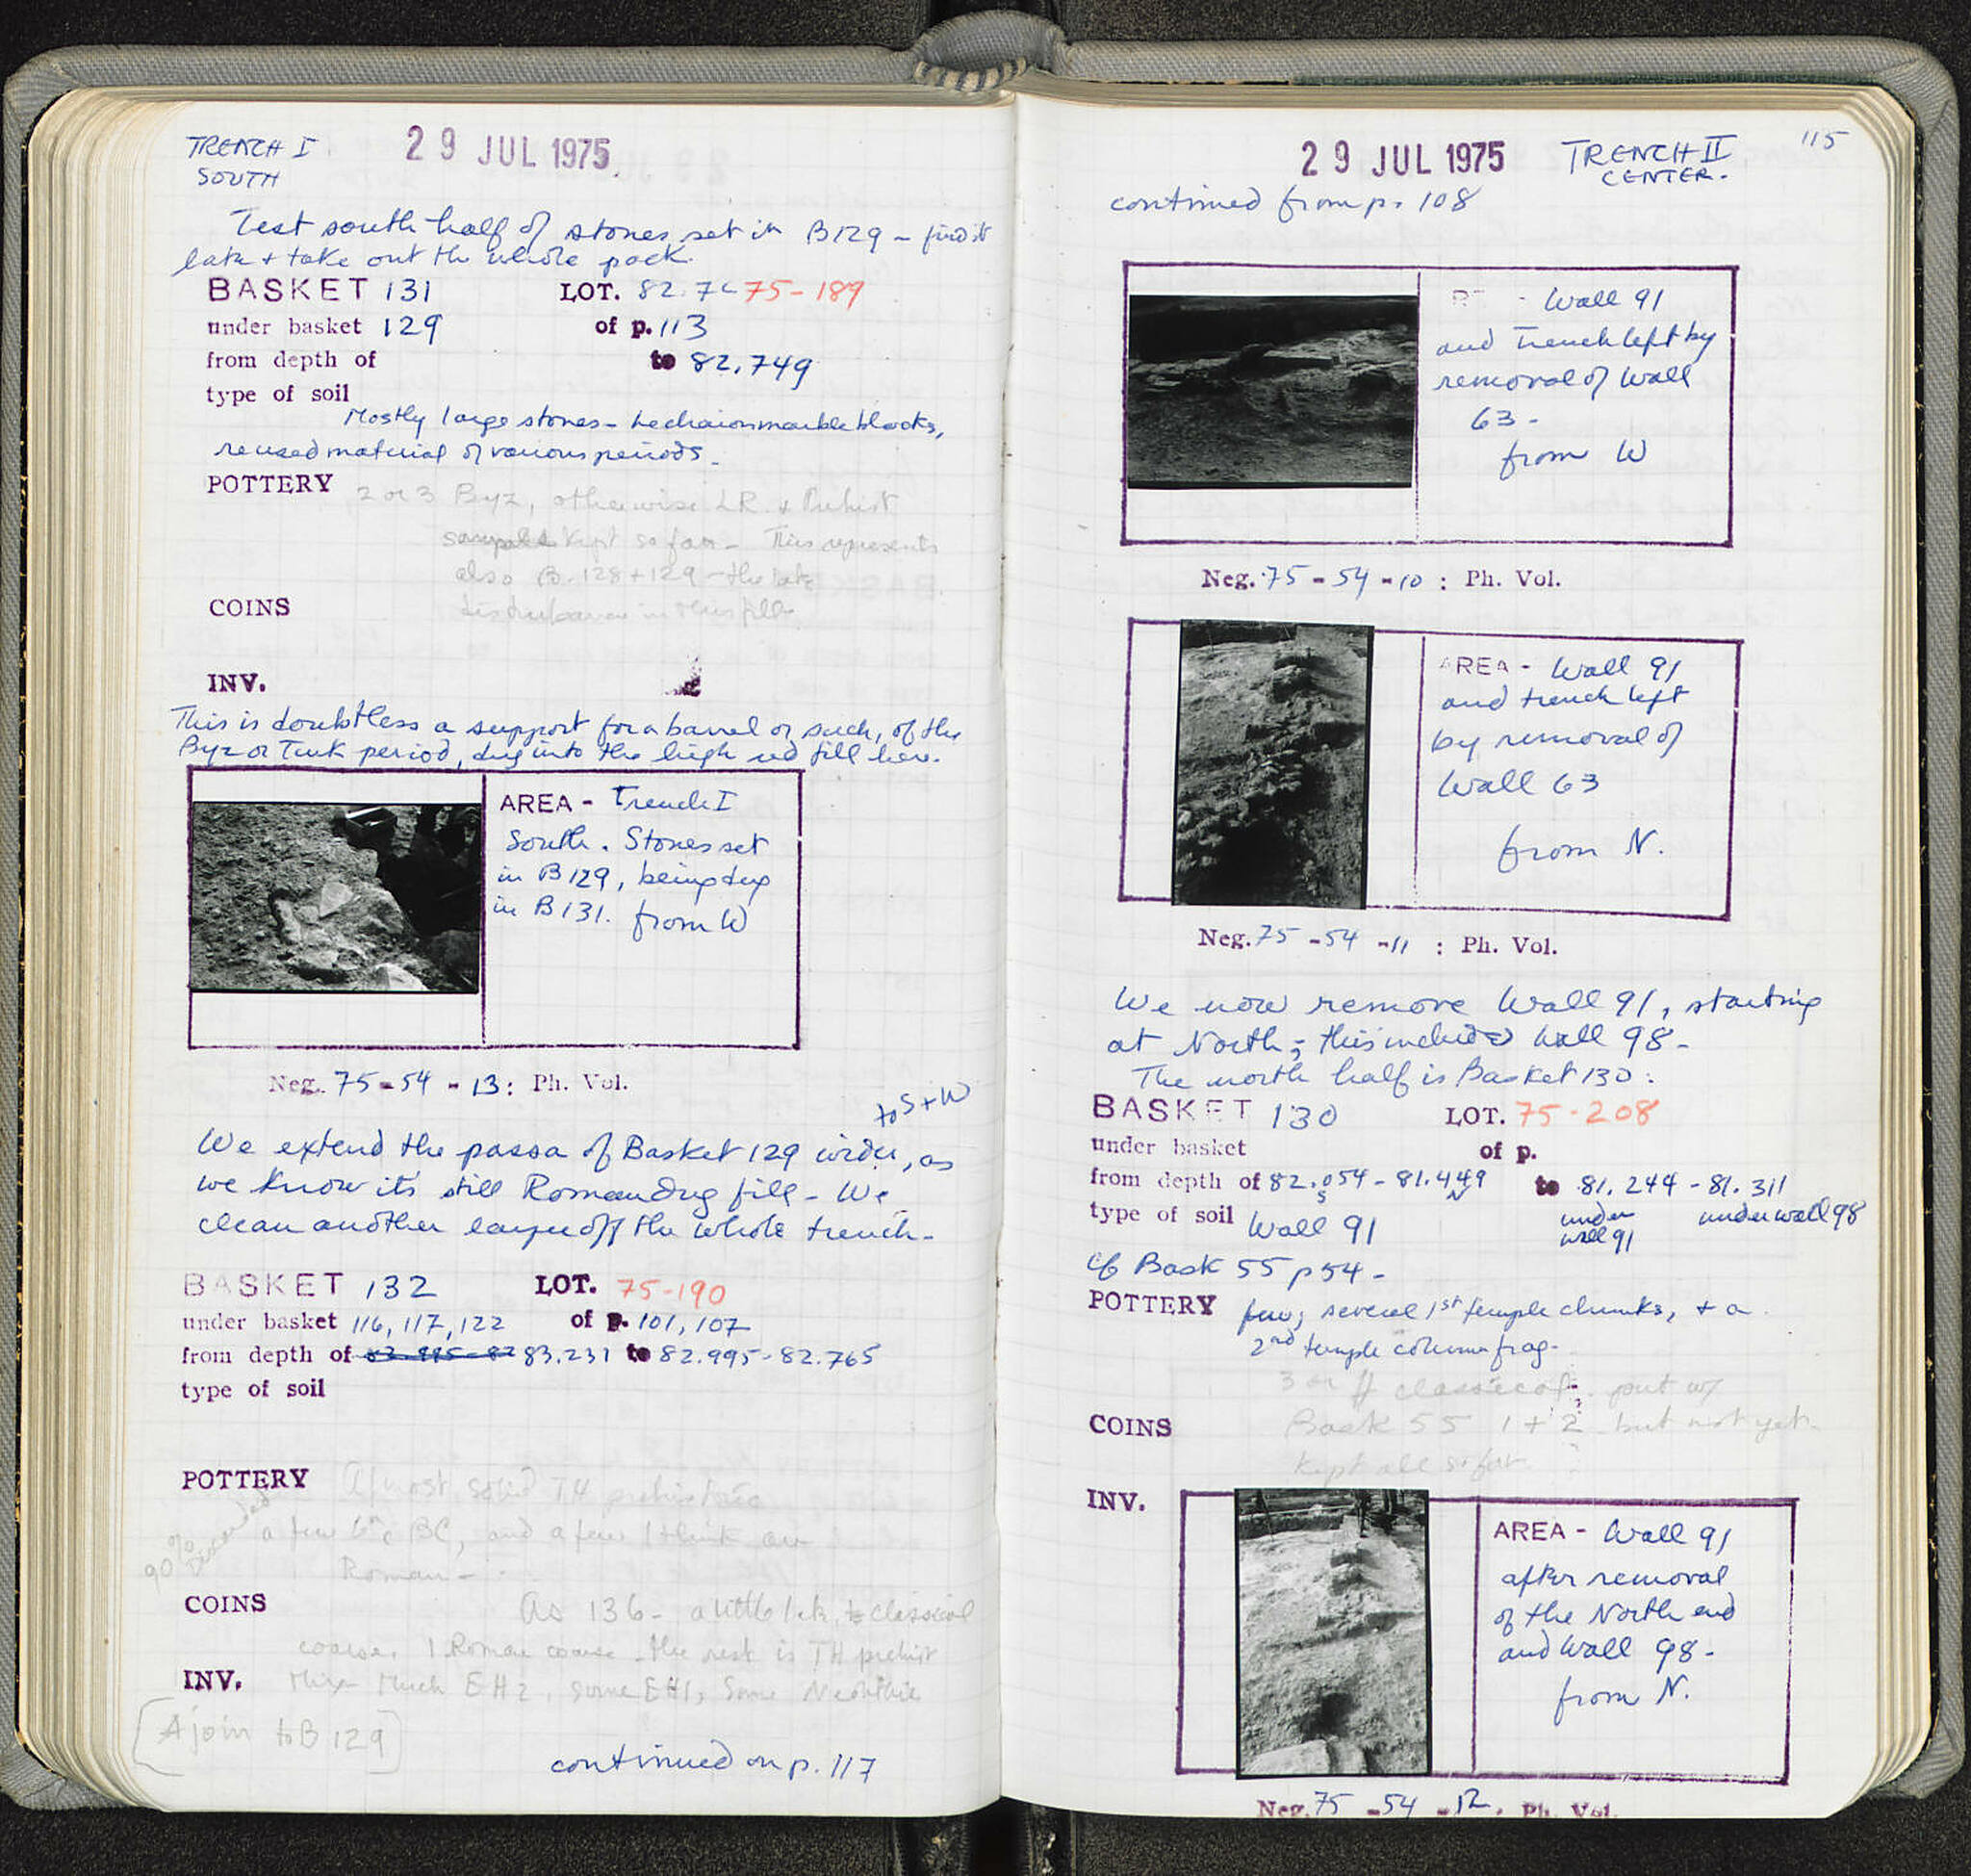 TRENCH I
SOUTH
29 JUL 1975
Test south half of stones set in B129 – find it
late + take out the whole pack.
BASKET 131
LOT. 75-189
under basket 129
of p. 113
from depth of
to 82.749
type of soil
Mostly large stones – marble blocks,
reused material of various periods.
POTTERY 2 or 3 Byz, otherwise LR. + Prehist
kept so far – This represents
also B. 128 + 129 – the late
disturbance in this fill.
COINS
INV.
This is doubtless a support for a barrel or such, of the
Byz or Turk period, dug into the high red fill here.
AREA - Trench I
South. Stones set
in B129, being dug
in B131. from W
Neg. 75-54-13: Ph. Vol.
to S + W
We extend the passa of Basket 129 wider, as
we know it's still Roman dug fill – We
clean another layer off the whole trench –
BASKET 132
LOT. 75-190
under basket 116, 117, 122
of p. 101, 107
from depth of 83.231 to 82.995-82.765
type of soil
POTTERY Almost solid TH prehistoric
a few 6th c BC, and a few I think are
Roman –
90% Discarded
COINS
As 136 – a little classical
coarse, 1 Roman coarse – the rest is TH prehist
INV.
Mix much EH2, some EH1, some Neolithic
[A join to B 129]
continued on p. 117
115
29 JUL 1975
TRENCH II
CENTER.
continued from p. 108
Wall 91
and trench left by
removal of Wall
63 –
from W
Neg. 75-54-10: Ph. Vol.
AREA - Wall 91
and trench left
by removal of
Wall 63
from N.
Neg. 75-54-11: Ph. Vol.
We now remove Wall 91, starting
at North; this includes Wall 98 –
The north half is Basket 130:
BASKET 130
LOT. 75-208
under basket
of p.
from depth of 82.054 - 81.449
to 81.244 - 81.311
S
N
under
wall 91
under wall 98
type of soil Wall 91
cf Bask 55 p 54 –
POTTERY few; several 1st temple chunks, + a
2nd temple column frag.
3 or 4 classical. put w/
COINS
Bask 55 1+2 but not yet.
kept all so far.
INV.
AREA - Wall 91
after removal
of the North end
and Wall 98 –
from N.
Neg. 75-54-12. Ph. Vol.